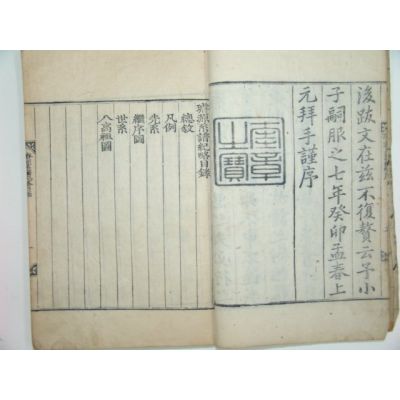 後跋文在玆不復贅云予小
子嗣服之七年癸卯孟春上
元拜手謹序
奎章
之寶
璿源系譜紀略目錄
總敍
凡例
先系
繼序圖
世系
八高祖圖